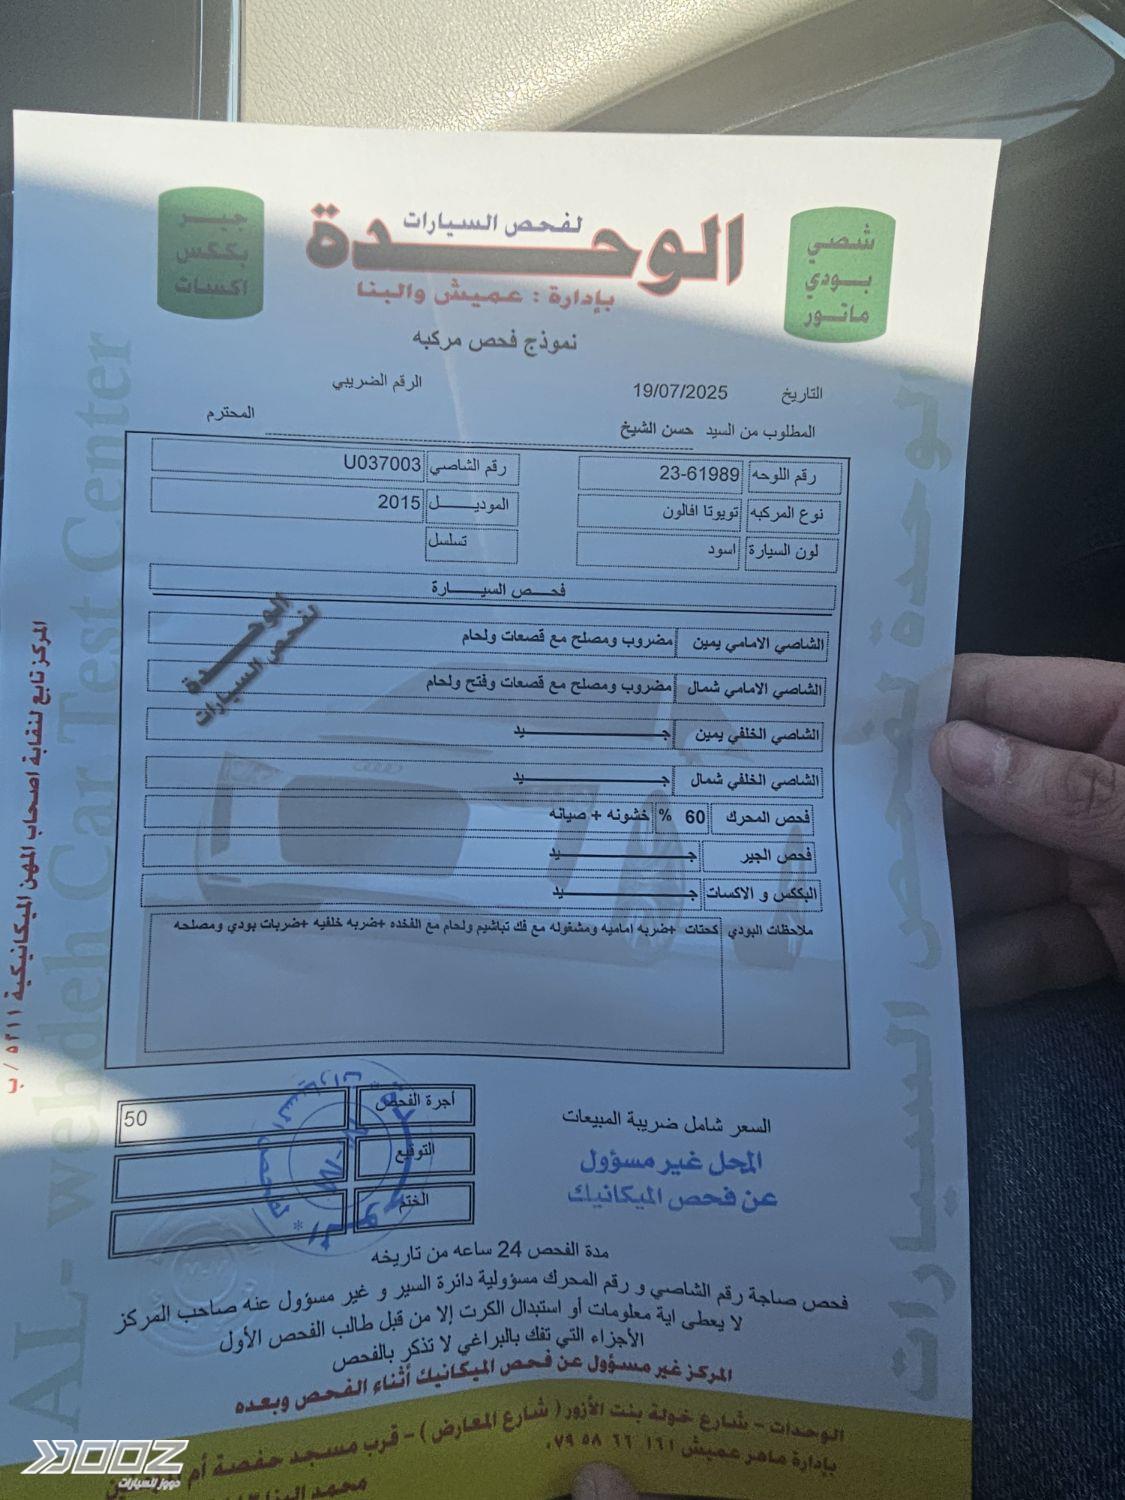 الوحدة
لفحص السيارات
بإدارة : عميش والبنا
شصي
بودي
ماتور
جير
بككس
اكسات
نموذج فحص مركبه
التاريخ 19/07/2025 الرقم الضريبي
المطلوب من السيد حسن الشيخ المحترم
رقم اللوحه 23-61989 رقم الشاصي U037003
نوع المركبه تويوتا افالون الموديل 2015
لون السيارة اسود تسلسل
فحص السيارة
الشاصي الامامي يمين مضروب ومصلح مع قصعات ولحام
الشاصي الامامي شمال مضروب ومصلح مع قصعات وفتح ولحام
الشاصي الخلفي يمين جيد
الشاصي الخلفي شمال جيد
فحص المحرك 60 % خشونه + صيانه
فحص الجير جيد
البككس و الاكسات جيد
ملاحظات البودي كحتات +ضربه اماميه ومشغوله مع فك تباشيم ولحام مع الفخده +ضربه خلفيه +ضربات بودي ومصلحه
الوحدة
لفحص السيارات
أجرة الفحص 50
التوقيع
الختم
السعر شامل ضريبة المبيعات
المحل غير مسؤول
عن فحص الميكانيك
مدة الفحص 24 ساعه من تاريخه
فحص صاجة رقم الشاصي و رقم المحرك مسؤولية دائرة السير و غير مسؤول عنه صاحب المركز
لا يعطى اية معلومات أو استبدال الكرت إلا من قبل طالب الفحص الأول
الأجزاء التي تفك بالبراغي لا تذكر بالفحص
المركز غير مسؤول عن فحص الميكانيك أثناء الفحص وبعده
الوحدات - شارع خولة بنت الأزور ( شارع المعارض ) - قرب مسجد حفصة أم
بإدارة ماهر عميش ٠٧٩ ٥٨ ٦٦ ١٦١
محمد البنا
المركز تابع لنقابة اصحاب المهن الميكانيكية ٥٢١١ / ب
AL-wehdeh Car Test Center
الوحدة لفحص السيارات
DOOZ
دووز للسيارات